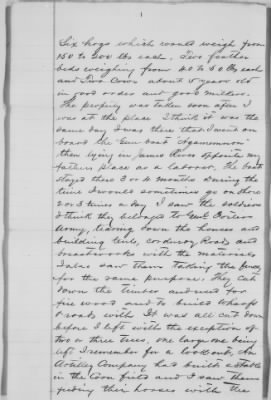 Six hogs which would weigh from
150 to 200 lbs each, Two feather
beds weighing from 40 to 60 lbs each
and Two Cows about 5 years old
in good order and good milkers.
The property was taken soon after I
was at the place I think it was the
same day I was there that I went on
board the Gun boat "Agamemnon"
then lying in James River opposite my
fathers place as a laborer, The boat
stayed there 3 or 4 months during the
time I would sometimes go on shore
2 or 3 times a day I saw the soldiers
I think they belonged to Genl
Army, tearing down the houses and
building tents, corduroy Roads and
breastworks with the materials
I also saw them taking the fences
for the same purposes, They cut
down the timber and used for
fire wood and to build Wharfs
& roads with It was all cut down
before I left with the exception of
two or three trees, one large one being
left I remember for a look out, An
Artillery Company had built a Stable
in the Corn field and I saw them
feeding their horses with the